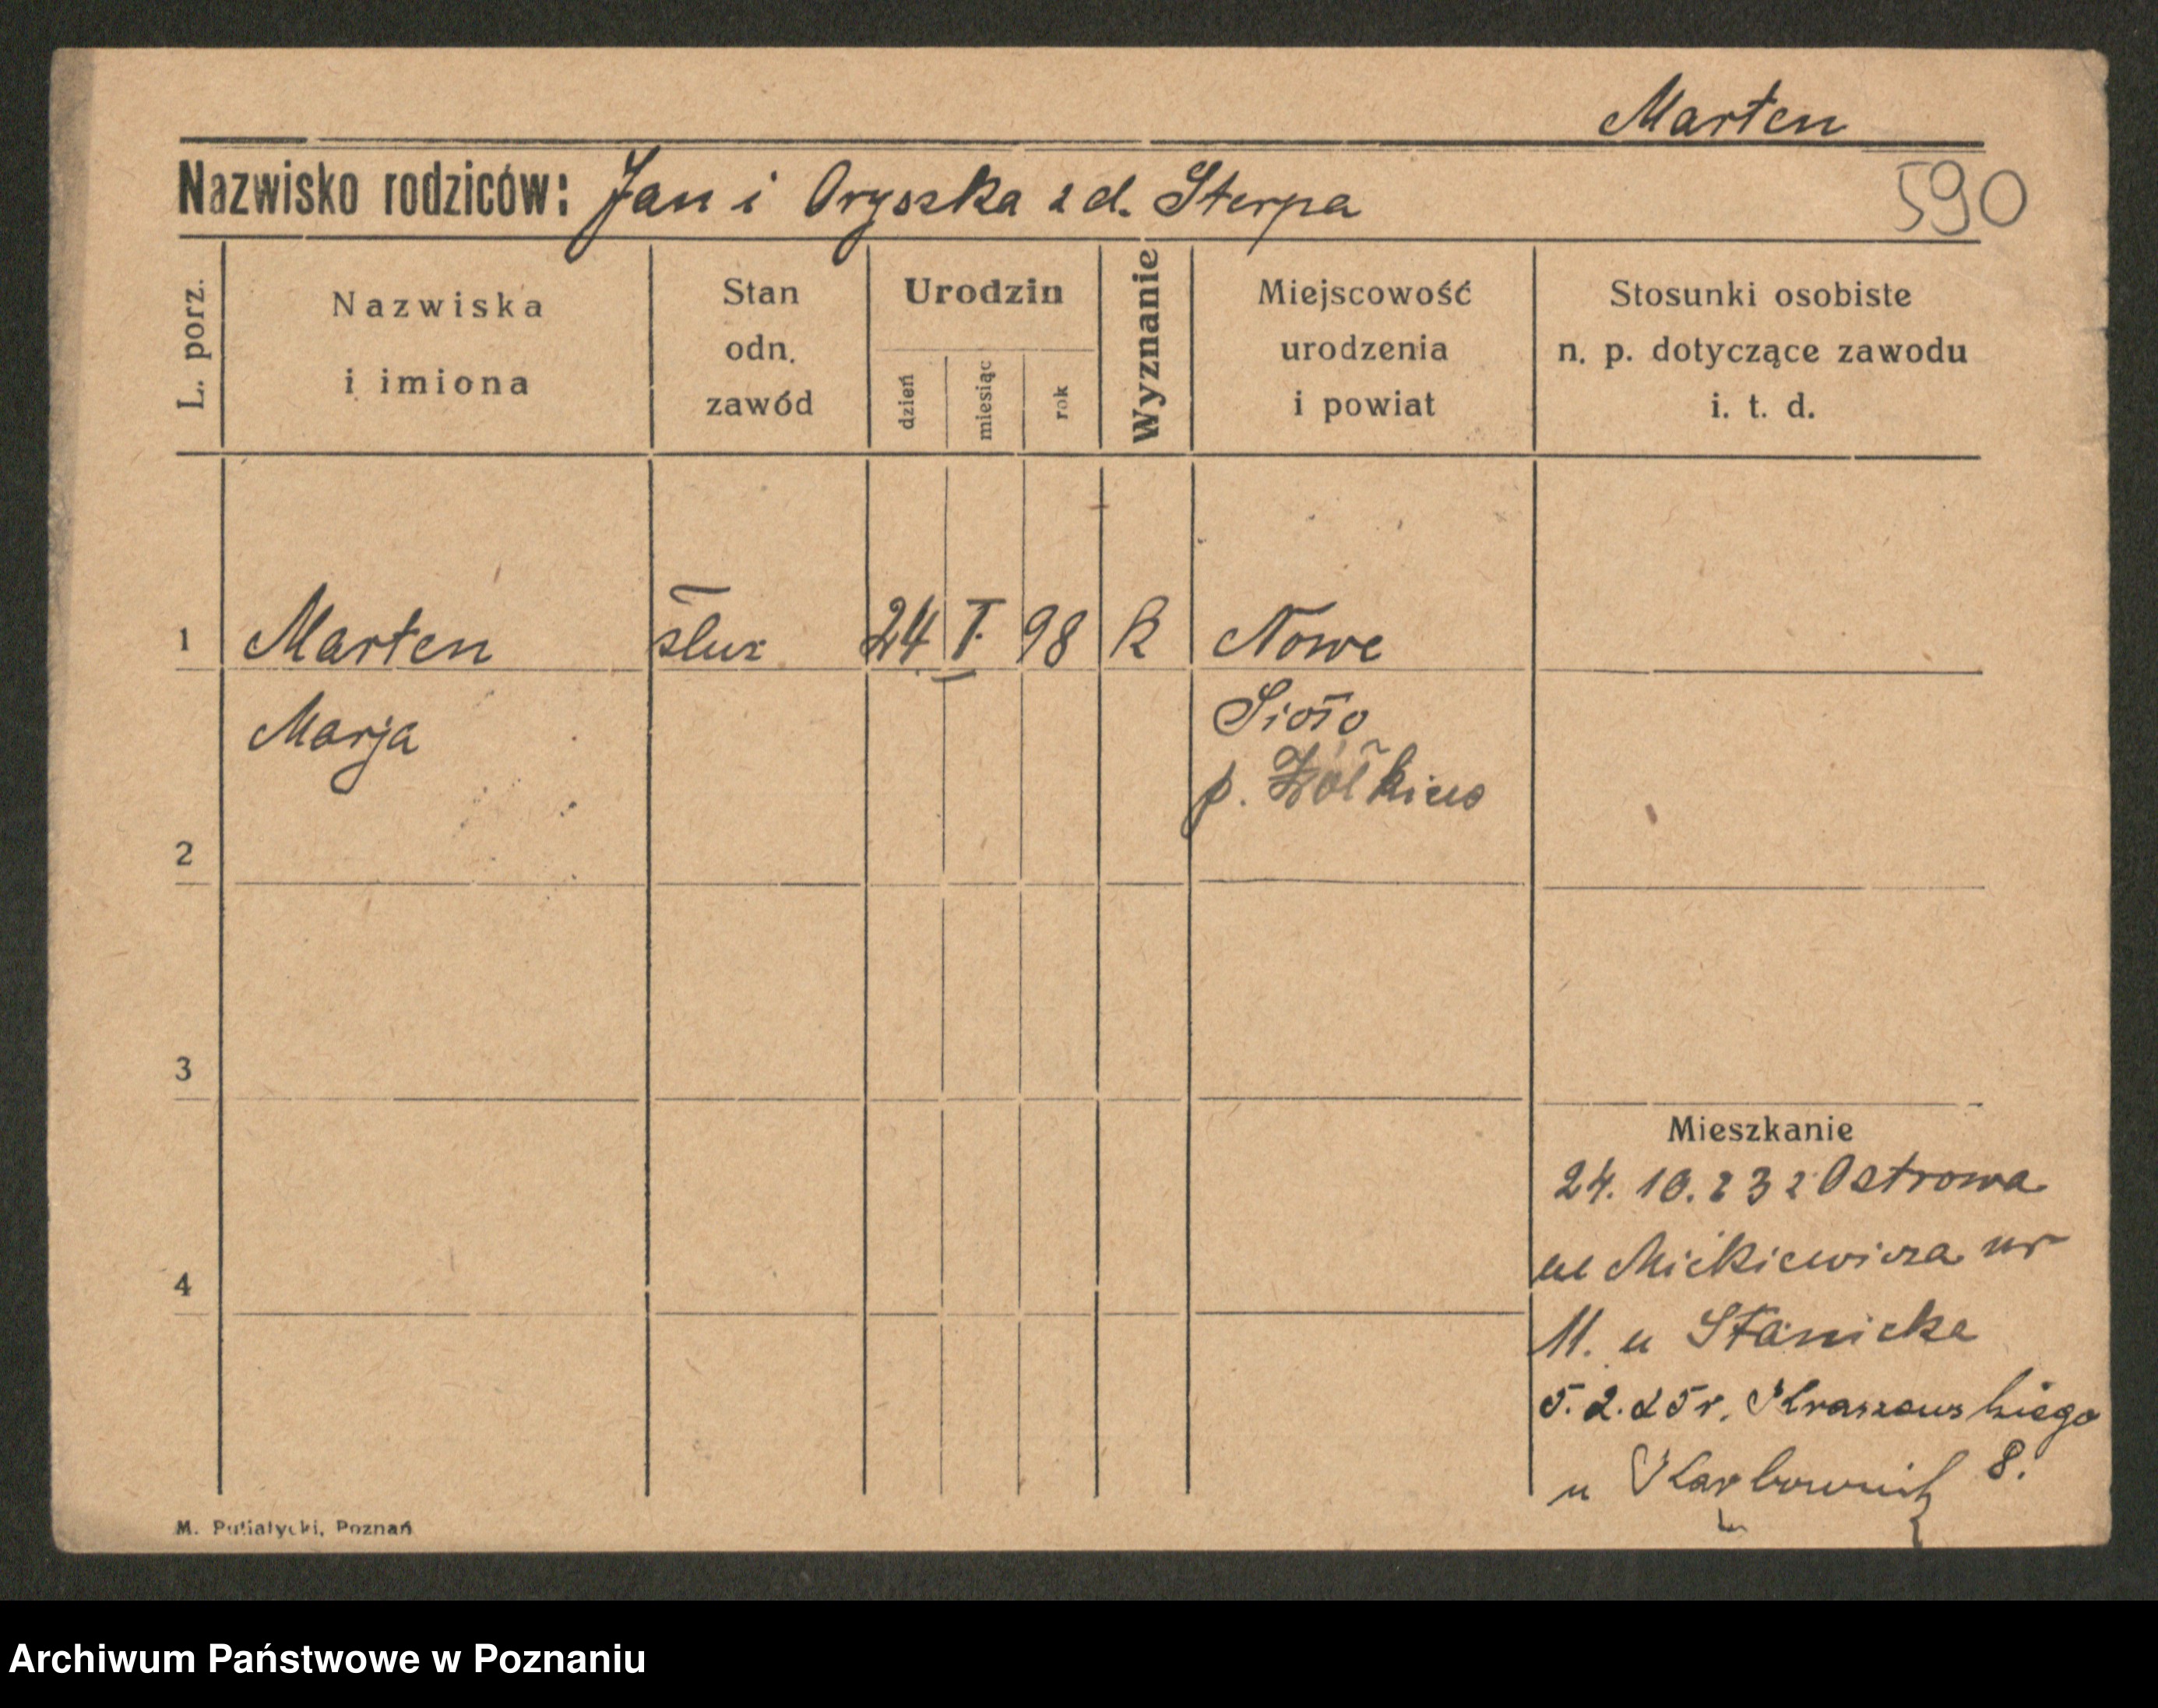 Marten
Nazwisko rodziców: Jan i Oryszka z d. Sterpa
590
L. porz.
Nazwiska
i imiona
Stan
odn.
zawód
Urodzin
dzień
miesiąc
rok
Wyznanie
Miejscowość
urodzenia
i powiat
Stosunki osobiste
n. p. dotyczące zawodu
i. t. d.
1 Marten służ 24 I. 98 R Nowe
Marja Sioło
p. Żółkiew
2
3
Mieszkanie
24. 10. 23 z Ostrowa
ul Mickiewicza nr
4
11. u Stanicke
5. 2. 25 r. Kraszewskiego
u Karbownik 8.
M. Putiatycki, Poznań
Archiwum Państwowe w Poznaniu